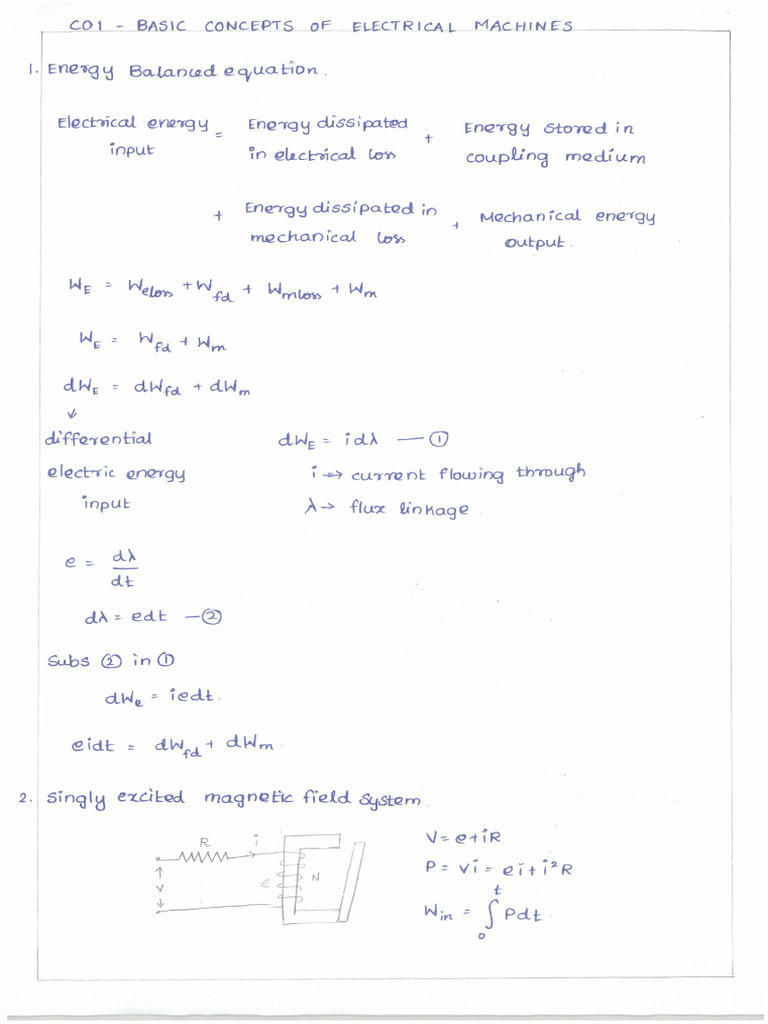 CO1 - BASIC CONCEPTS OF ELECTRICAL MACHINES
1. Energy Balanced equation.
Electrical energy input = Energy dissipated in electrical loss + Energy stored in coupling medium
+ Energy dissipated in mechanical loss + Mechanical energy output.
W_E = W_eloss + W_fd + W_mloss + W_m
W_E = W_fd + W_m
dW_E = dW_fd + dW_m
↓
differential electric energy input
dW_E = idλ — ①
i → current flowing through
λ → flux linkage
e = dλ/dt
dλ = edt — ②
Subs ② in ①
dW_e = iedt.
eidt = dW_fd + dW_m.
2. Singly excited magnetic field system.
R i
V e N
V = e+iR
P = Vi = ei + i²R
W_in = ∫₀ᵗ Pdt